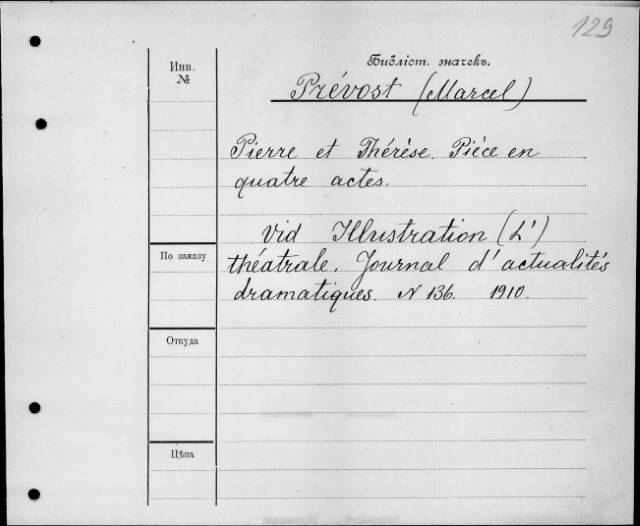 129
Библіот. значекъ.
Инв.
№
Prévost (Marcel)
Pierre et Thérèse. Pièce en
quatre actes.
vid Illustration (L')
По заказу
théatrale. Journal d'actualités
dramatiques. N 136. 1910.
Откуда
Цѣна